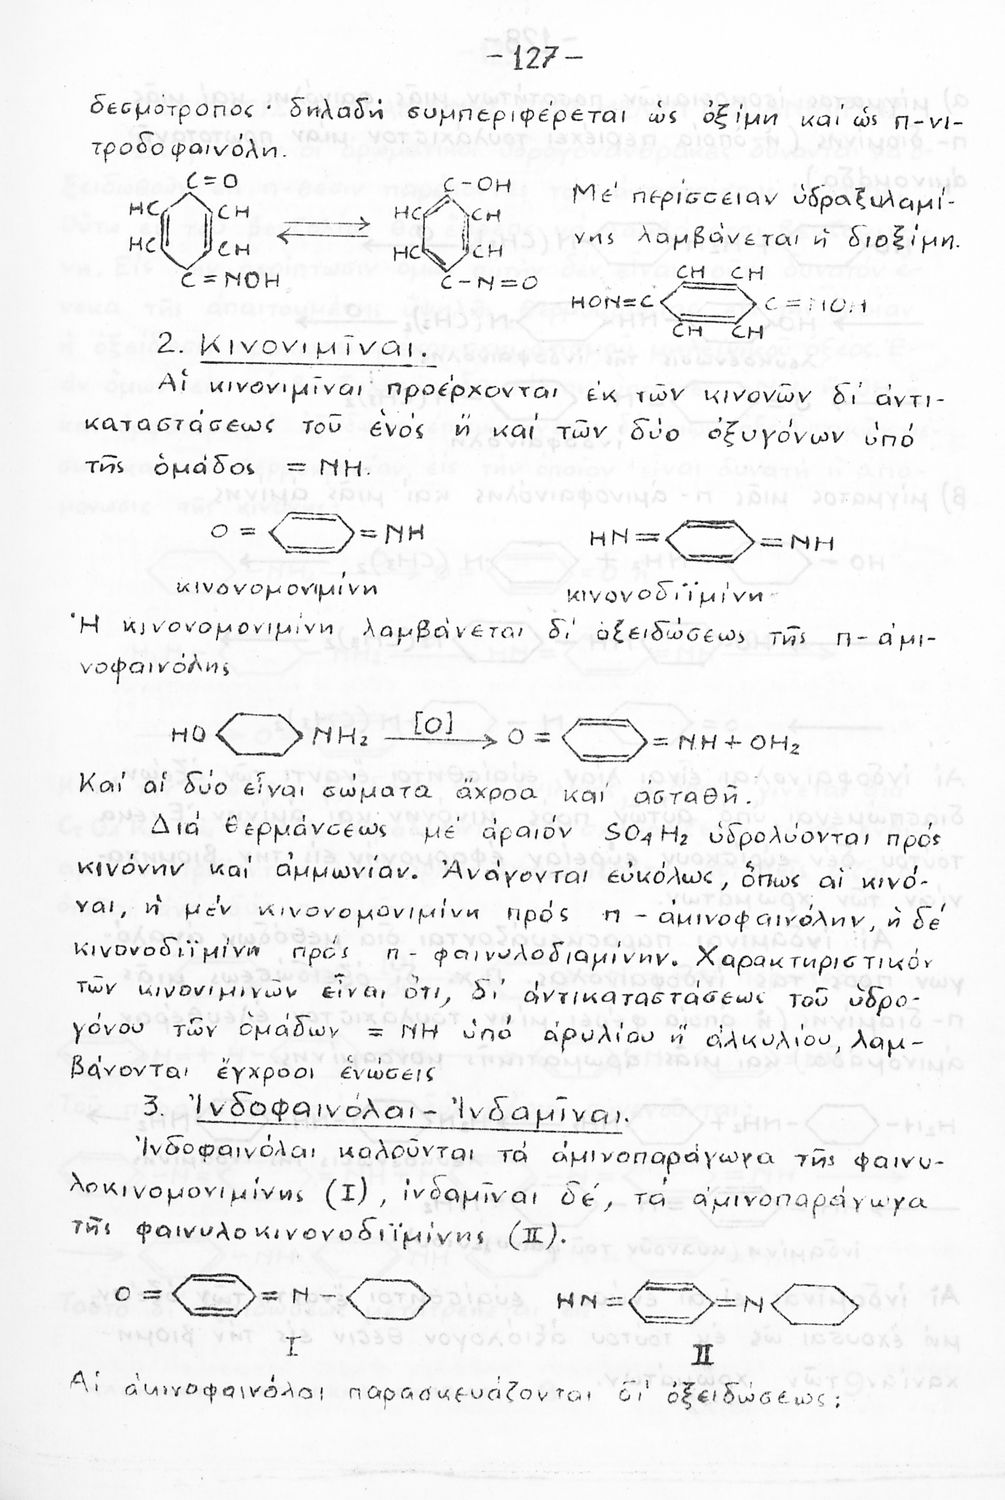 -127-
δεσμότροπος · δηλαδή συμπεριφέρεται ὡς ὀξίμη καί ὡς π-νι-
τροδοφαινόλη.
C=O
HC CH
HC CH
C=NOH
C-OH
HC CH
HC CH
C-N=O
Μέ περίσσειαν ὑδραξυλαμί-
νης λαμβάνεται ἡ διοξίμη.
CH CH
HON=C C=NOH
CH CH
2. Κινονιμῖναι.
Αἱ κινονιμῖναι προέρχονται ἐκ τῶν κινονῶν δι' ἀντι-
καταστάσεως τοῦ ἑνός ἤ καί τῶν δύο ὀξυγόνων ὑπό
τῆς ὁμάδος = NH.
O = =NH HN= =NH
κινονομονιμίνη κινονοδιϊμίνη
Ἡ κινονομονιμίνη λαμβάνεται δι' ὀξειδώσεως τῆς π-ἀμι-
νοφαινόλης
HO NH₂ [O] O = = NH + OH₂
Καί αἱ δύο εἶναι σώματα ἄχροα καί ἀσταθῆ.
Διά θερμάνσεως μέ ἀραιόν SO₄H₂ ὑδρολύονται πρός
κινόνην καί ἀμμωνίαν. Ἀνάγονται εὐκόλως, ὅπως αἱ κινό-
ναι, ἡ μέν κινονομονιμίνη πρός π - ἀμινοφαινόλην, ἡ δέ
κινονοδιϊμίνη πρός π - φαινυλοδιαμίνην. Χαρακτηριστικόν
τῶν κινονιμινῶν εἶναι ὅτι, δι' ἀντικαταστάσεως τοῦ ὑδρο-
γόνου τῶν ὁμάδων = NH ὑπό ἀρυλίου ἤ ἀλκυλίου, λαμ-
βάνονται ἔγχροοι ἑνώσεις
3. Ἰνδοφαινόλαι - Ἰνδαμῖναι.
Ἰνδοφαινόλαι καλοῦνται τά ἀμινοπαράγωγα τῆς φαινυ-
λοκινομονιμίνης (I), ἰνδαμῖναι δέ, τά ἀμινοπαράγωγα
τῆς φαινυλοκινονοδιϊμίνης (II).
O = = N - HN= =N
I II
Αἱ ἀκινοφαινόλαι παρασκευάζονται δι' ὀξειδώσεως: